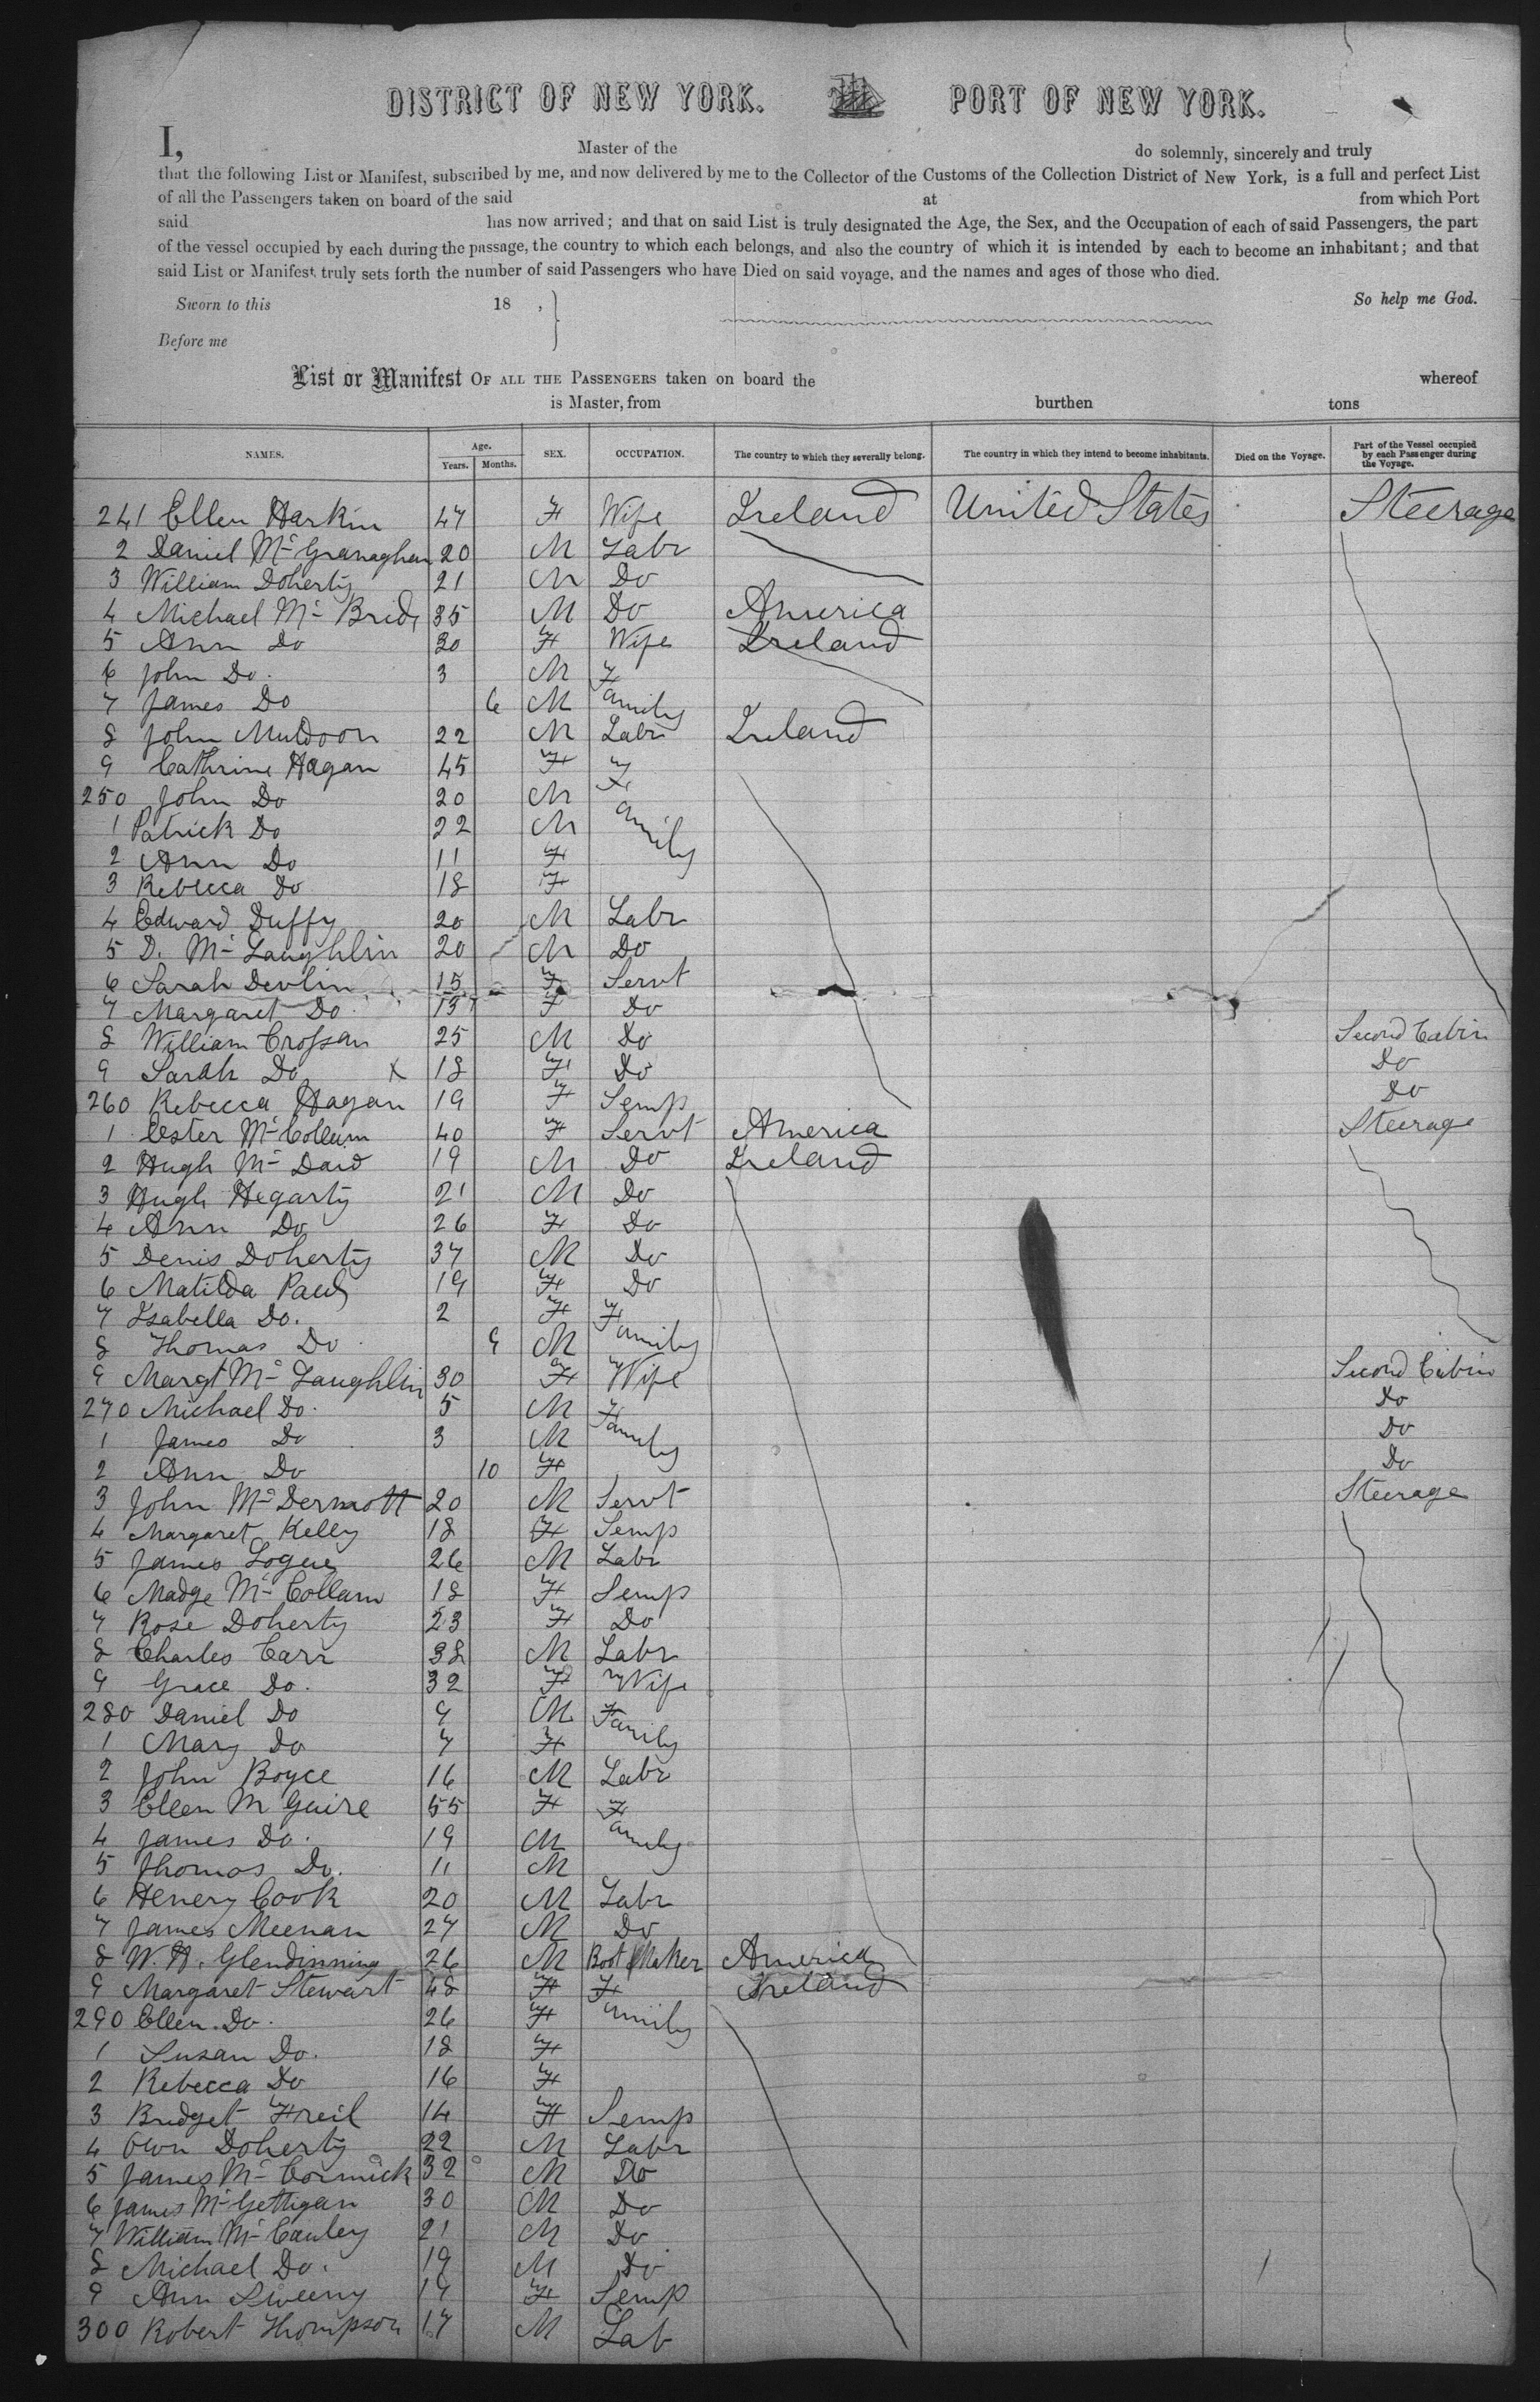 DISTRICT OF NEW YORK. PORT OF NEW YORK.
I, Master of the do solemnly, sincerely and truly
that the following List or Manifest, subscribed by me, and now delivered by me to the Collector of the Customs of the Collection District of New York, is a full and perfect List
of all the Passengers taken on board of the said at from which Port
said has now arrived; and that on said List is truly designated the Age, the Sex, and the Occupation of each of said Passengers, the part
of the vessel occupied by each during the passage, the country to which each belongs, and also the country of which it is intended by each to become an inhabitant; and that
said List or Manifest truly sets forth the number of said Passengers who have Died on said voyage, and the names and ages of those who died.
Sworn to this 18 , So help me God.
Before me
List or Manifest OF ALL THE PASSENGERS taken on board the whereof
is Master, from burthen tons
NAMES. Age. Years. Months. SEX. OCCUPATION. The country to which they severally belong. The country in which they intend to become inhabitants. Died on the Voyage. Part of the Vessel occupied by each Passenger during the Voyage.
241 Ellen Harkin 47 F Wife Ireland United States Steerage
2 Daniel Mc Granaghan 20 M Labr
3 William Doherty 21 M Do
4 Michael Mc Bride 35 M Do America
5 Ann Do 30 F Wife Ireland
6 John Do. 3 M Family
7 James Do 6 M
8 John Muldoon 22 M Labr Ireland
9 Cathrine Hagan 45 F Family
250 John Do 20 M
1 Patrick Do 22 M
2 Ann Do 11 F
3 Rebecca Do 18 F
4 Edward Duffy 20 M Labr
5 D. Mc Laughlin 20 M Do
6 Sarah Devlin 15 F Servt
7 Margaret Do 13 F Do
8 William Crossan 25 M Do Second Cabin
9 Sarah Do X 18 F Do Do
260 Rebecca Hagan 19 F Semp Do
1 Ester Mc Collum 40 F Servt America Steerage
2 Hugh Mc Daid 19 M Do Ireland
3 Hugh Hegarty 21 M Do
4 Ann Do 26 F Do
5 Denis Doherty 37 M Do
6 Matilda Paul 19 F Do
7 Isabella Do. 2 F Family
8 Thomas Do 9 M
9 Margt Mc Laughlin 30 F Wife Second Cabin
270 Michael Do. 5 M Family Do
1 James Do 3 M Do
2 Ann Do 10 F Do
3 John Mc Dermott 20 M Servt Steerage
4 Margaret Kelly 18 F Semp
5 James Logue 26 M Labr
6 Madge Mc Collam 18 F Semp
7 Rose Doherty 23 F Do
8 Charles Carr 38 M Labr
9 Grace Do. 32 F Wife
280 Daniel Do 9 M Family
1 Mary Do 7 F
2 John Boyce 16 M Labr
3 Ellen M Guire 55 F Family
4 James Do. 19 M
5 Thomas Do. 11 M
6 Henery Cook 20 M Labr
7 James Meenan 27 M Do
8 W. H. Glendinning 26 M Boot Maker America
9 Margaret Stewart 48 F Family Ireland
290 Ellen Do. 26 F
1 Susan Do. 18 F
2 Rebecca Do 16 F
3 Bridget Freil 14 F Semp
4 Own Doherty 22 M Labr
5 James Mc Cormick 32 M Do
6 James Mc Gettigan 30 M Do
7 William Mc Cauley 21 M Do
8 Michael Do. 19 M Do
9 Ann Sweeny 19 F Semp
300 Robert Thompson 17 M Lab